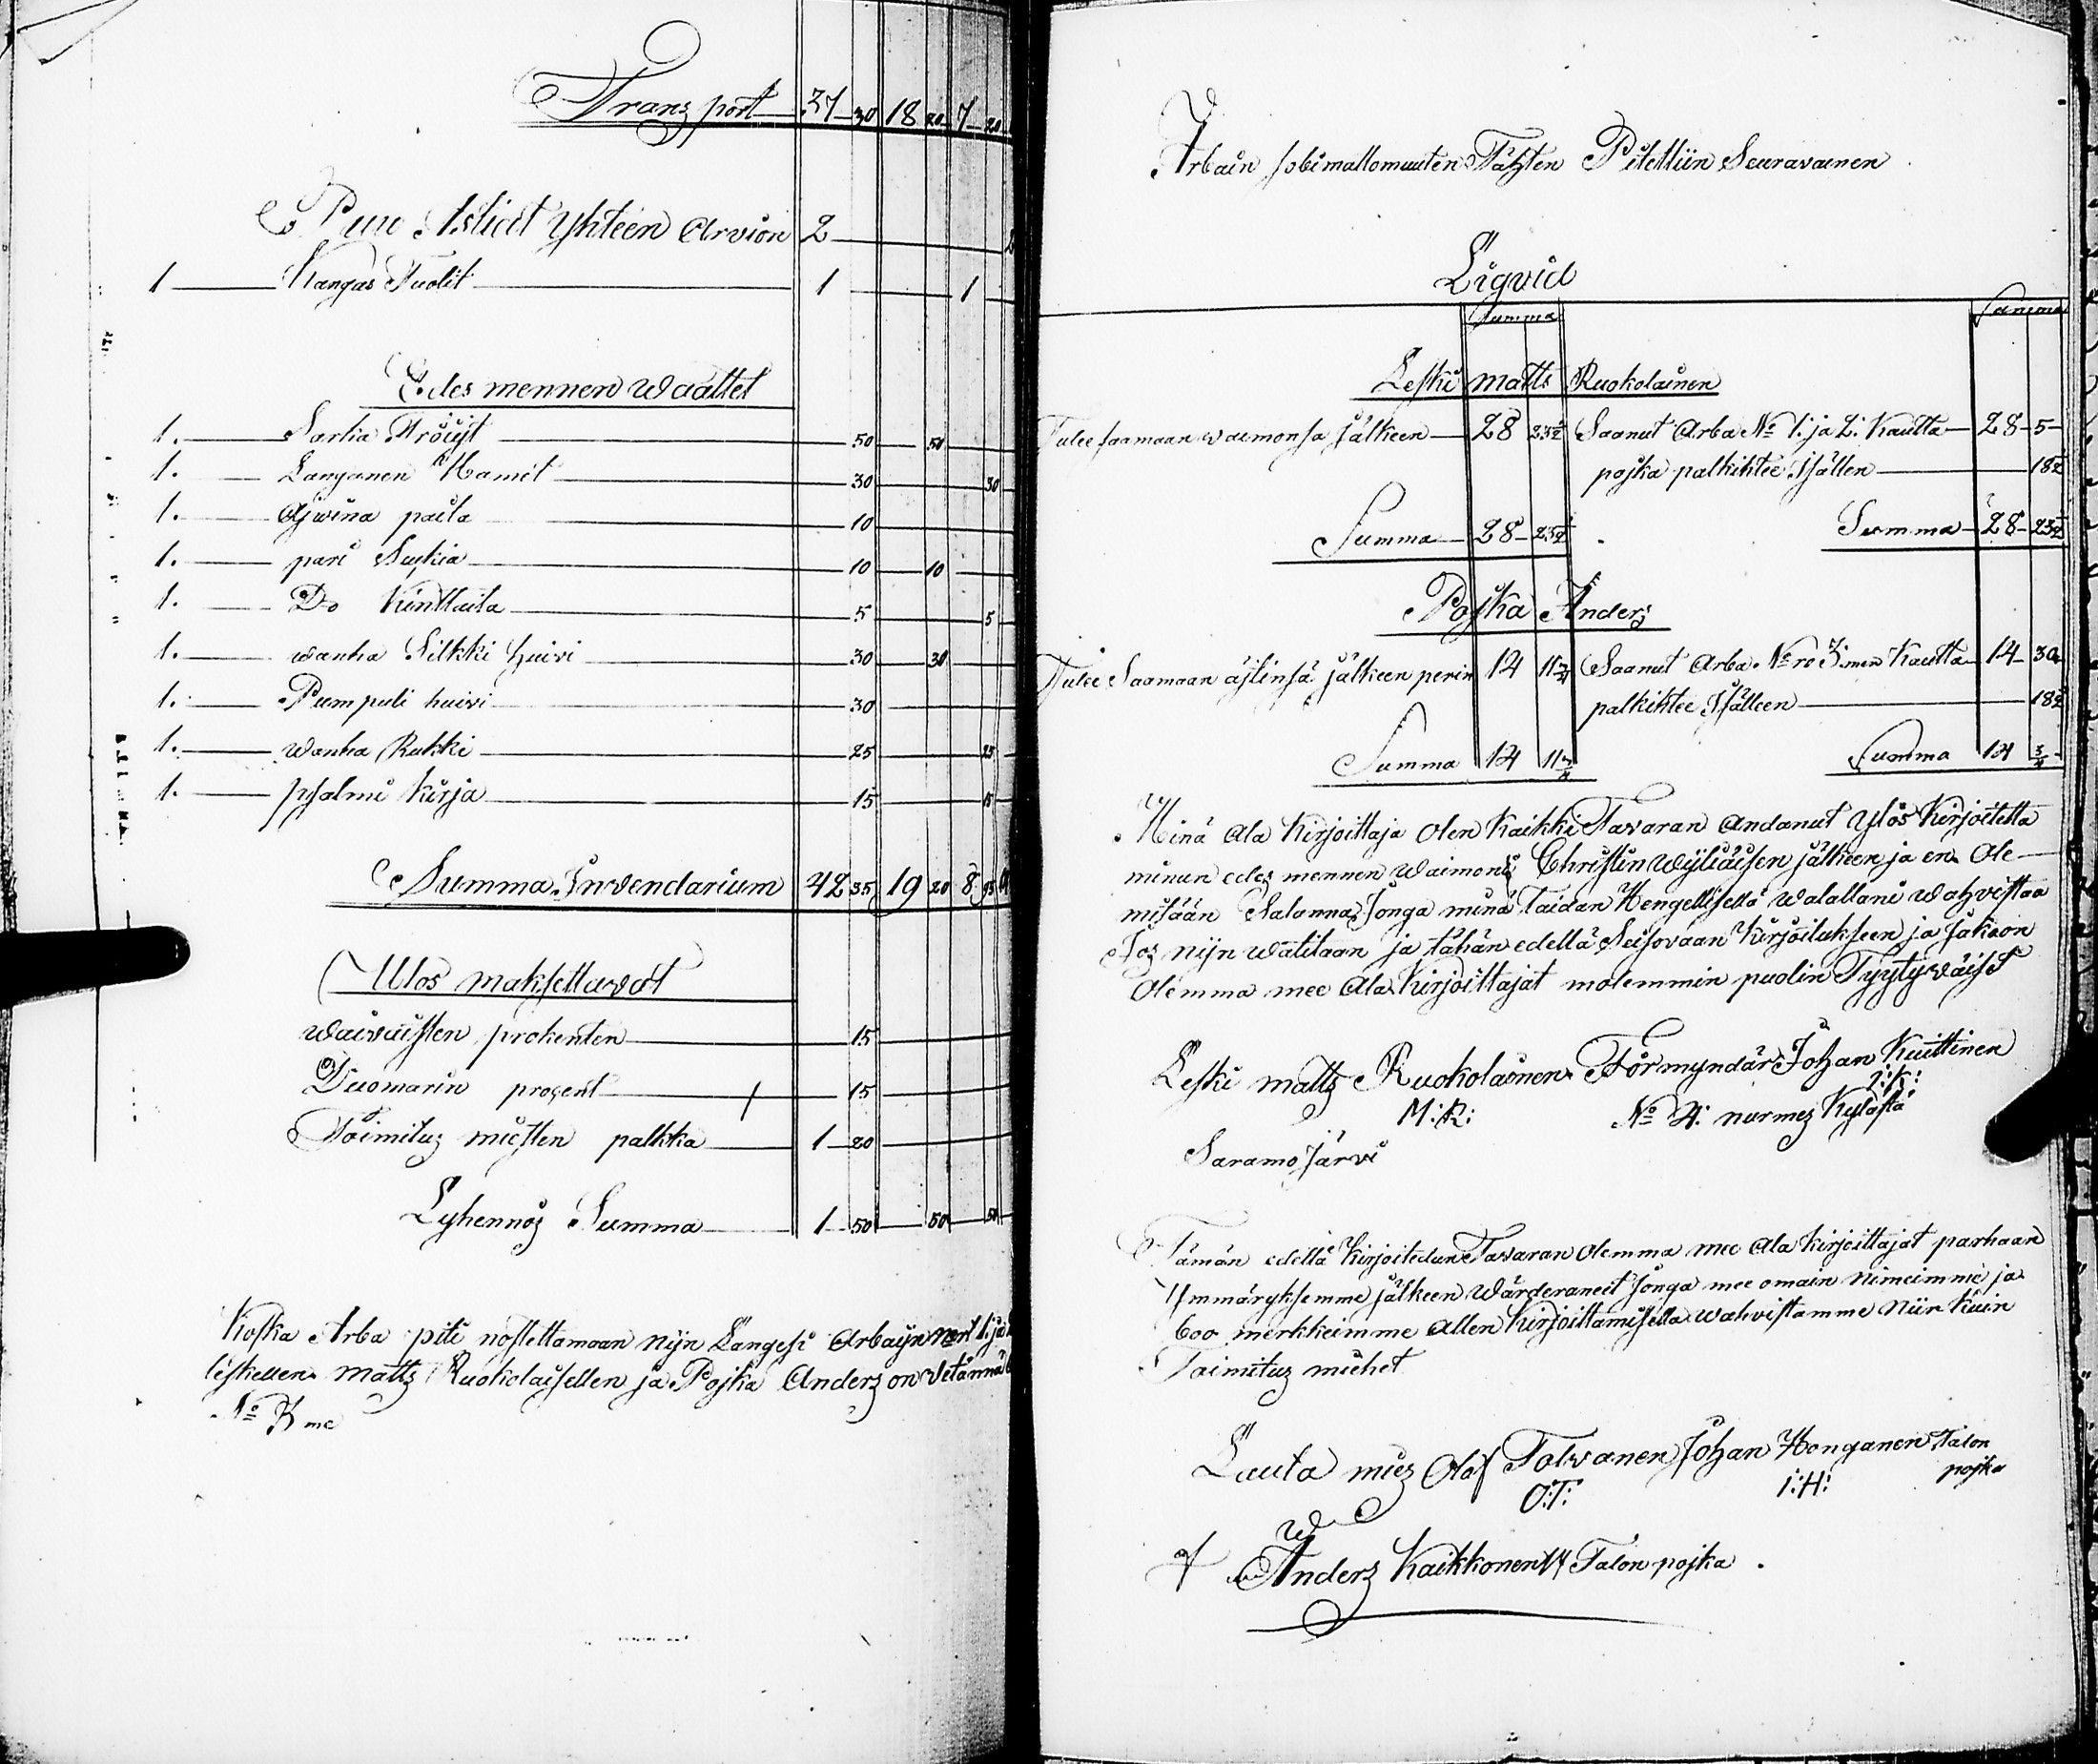 Transport 37 30 18 20 7 20
Puu Astiat Yhteen Arvion 2
1 Kangas Tuolit 1 1
Edes mennen Waattet
1. Sarka Tröijt 50 50
1. Langanen Hamet 30 30
1. Ajwina paita 10
1. pari Sukia 10 10
1. Do Kinttaita 5 5
1. wanha Silkki huivi 30 30
1. Pumpuli huivi 30
1. Wanha Rukki 25 25
1. psalmi Kirja 15 15
Summa Inventarium 42 35 19 20 8
Ulos maksettavat
waivaisten prosenten 15
Duomarin prosent 15
Toimitus miesten palkka 1 20
Lyhennös Summa 1 50 50 50
Koska Arba piti nostettamaan nijn Langesi Arbaijn
leskellen matts Ruokolaisellen ja Pojka Anders on Vetännä
No 3 me
Arbain sobimattomuuten Tähten Pitettiin Seuravainen
Liqvid
Summa Summa
Leski matts Ruokolainen
Tulee saamaan waimonsa jälkeen 28 23½ Saanut Arba No 1: ja 2: Kautta 28 5
pojka palkihtee Isällen 18½
Summa 28 23½ Summa 28 23½
Pojka Anders
Tulee Saamaan äitinsä jälkeen perin 14 11¾ Saanut Arba Nro 3:men Kautta 14 30
palkihtee Isälleen
Summa 14 11¾ Summa 14 ¾
Minä Ala Kirjoittaja Olen Kaikki Tavaran Andanut Ylös Kirjoitetta
minun edes mennen Waimoni Christin Wäyliäisen jälkeen ja en Ole
misään Salanna, Jonga minä Taidan Hengellisellä Walallani Wahvistaa
Jos niin Waatitaan ja tähän edellä Seisovaan Kirjoitukseen ja jakoon
Olemma mee Ala Kirjoittajat molemmin puolin Tyytyväiset
Leski matts Ruokolainen Förmyndär Johan Kuittinen
M:R: J:K:
No 4: nurmes Kylästä
Saramo Järvi
Tämän edellä Kirjoitedun Tavaran Olemma mee Ala Kirjoittajat parhaan
Ymmäryksemme jälkeen Wärderaneet Jonga mee omain nimeimme ja
boo merkkeimme Allen Kirjoittamisella wahvistamme niin Kuin
Toimitus miehet
Lauta mies Olof Tolvanen Johan Honganen Talon
O:T: I:H: pojka
Anders Kaikkonen Talon pojka